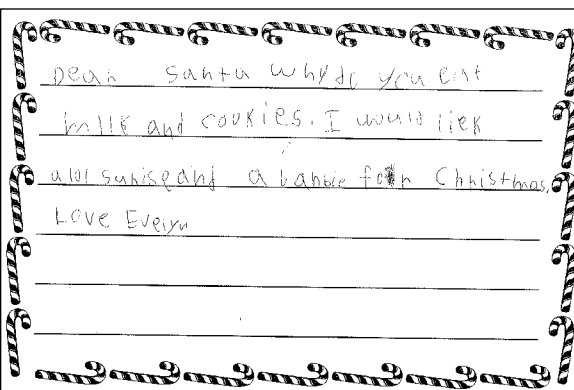 Dear Santa why do you eat
milk and cookies. I would liek
a lol surpise and a barbie for Christmas.
Love Evelyn